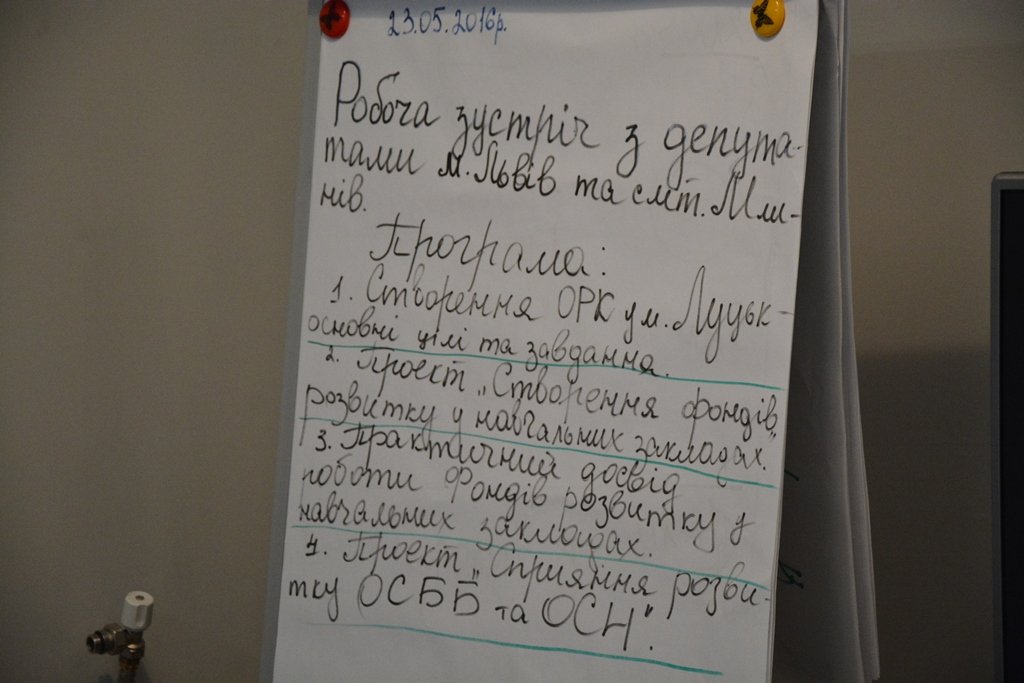 23.05.2016р.
Робоча зустріч з депута-
тами м. Львів та смт. Мли-
нів.
Програма:
1. Створення ОРК у м. Луцьк -
основні цілі та завдання.
2. Проект „Створення фондів
розвитку у навчальних закладах."
3. Практичний досвід
роботи Фондів розвитку у
навчальних закладах.
4. Проект „Сприяння розви-
тку ОСББ та ОСН".